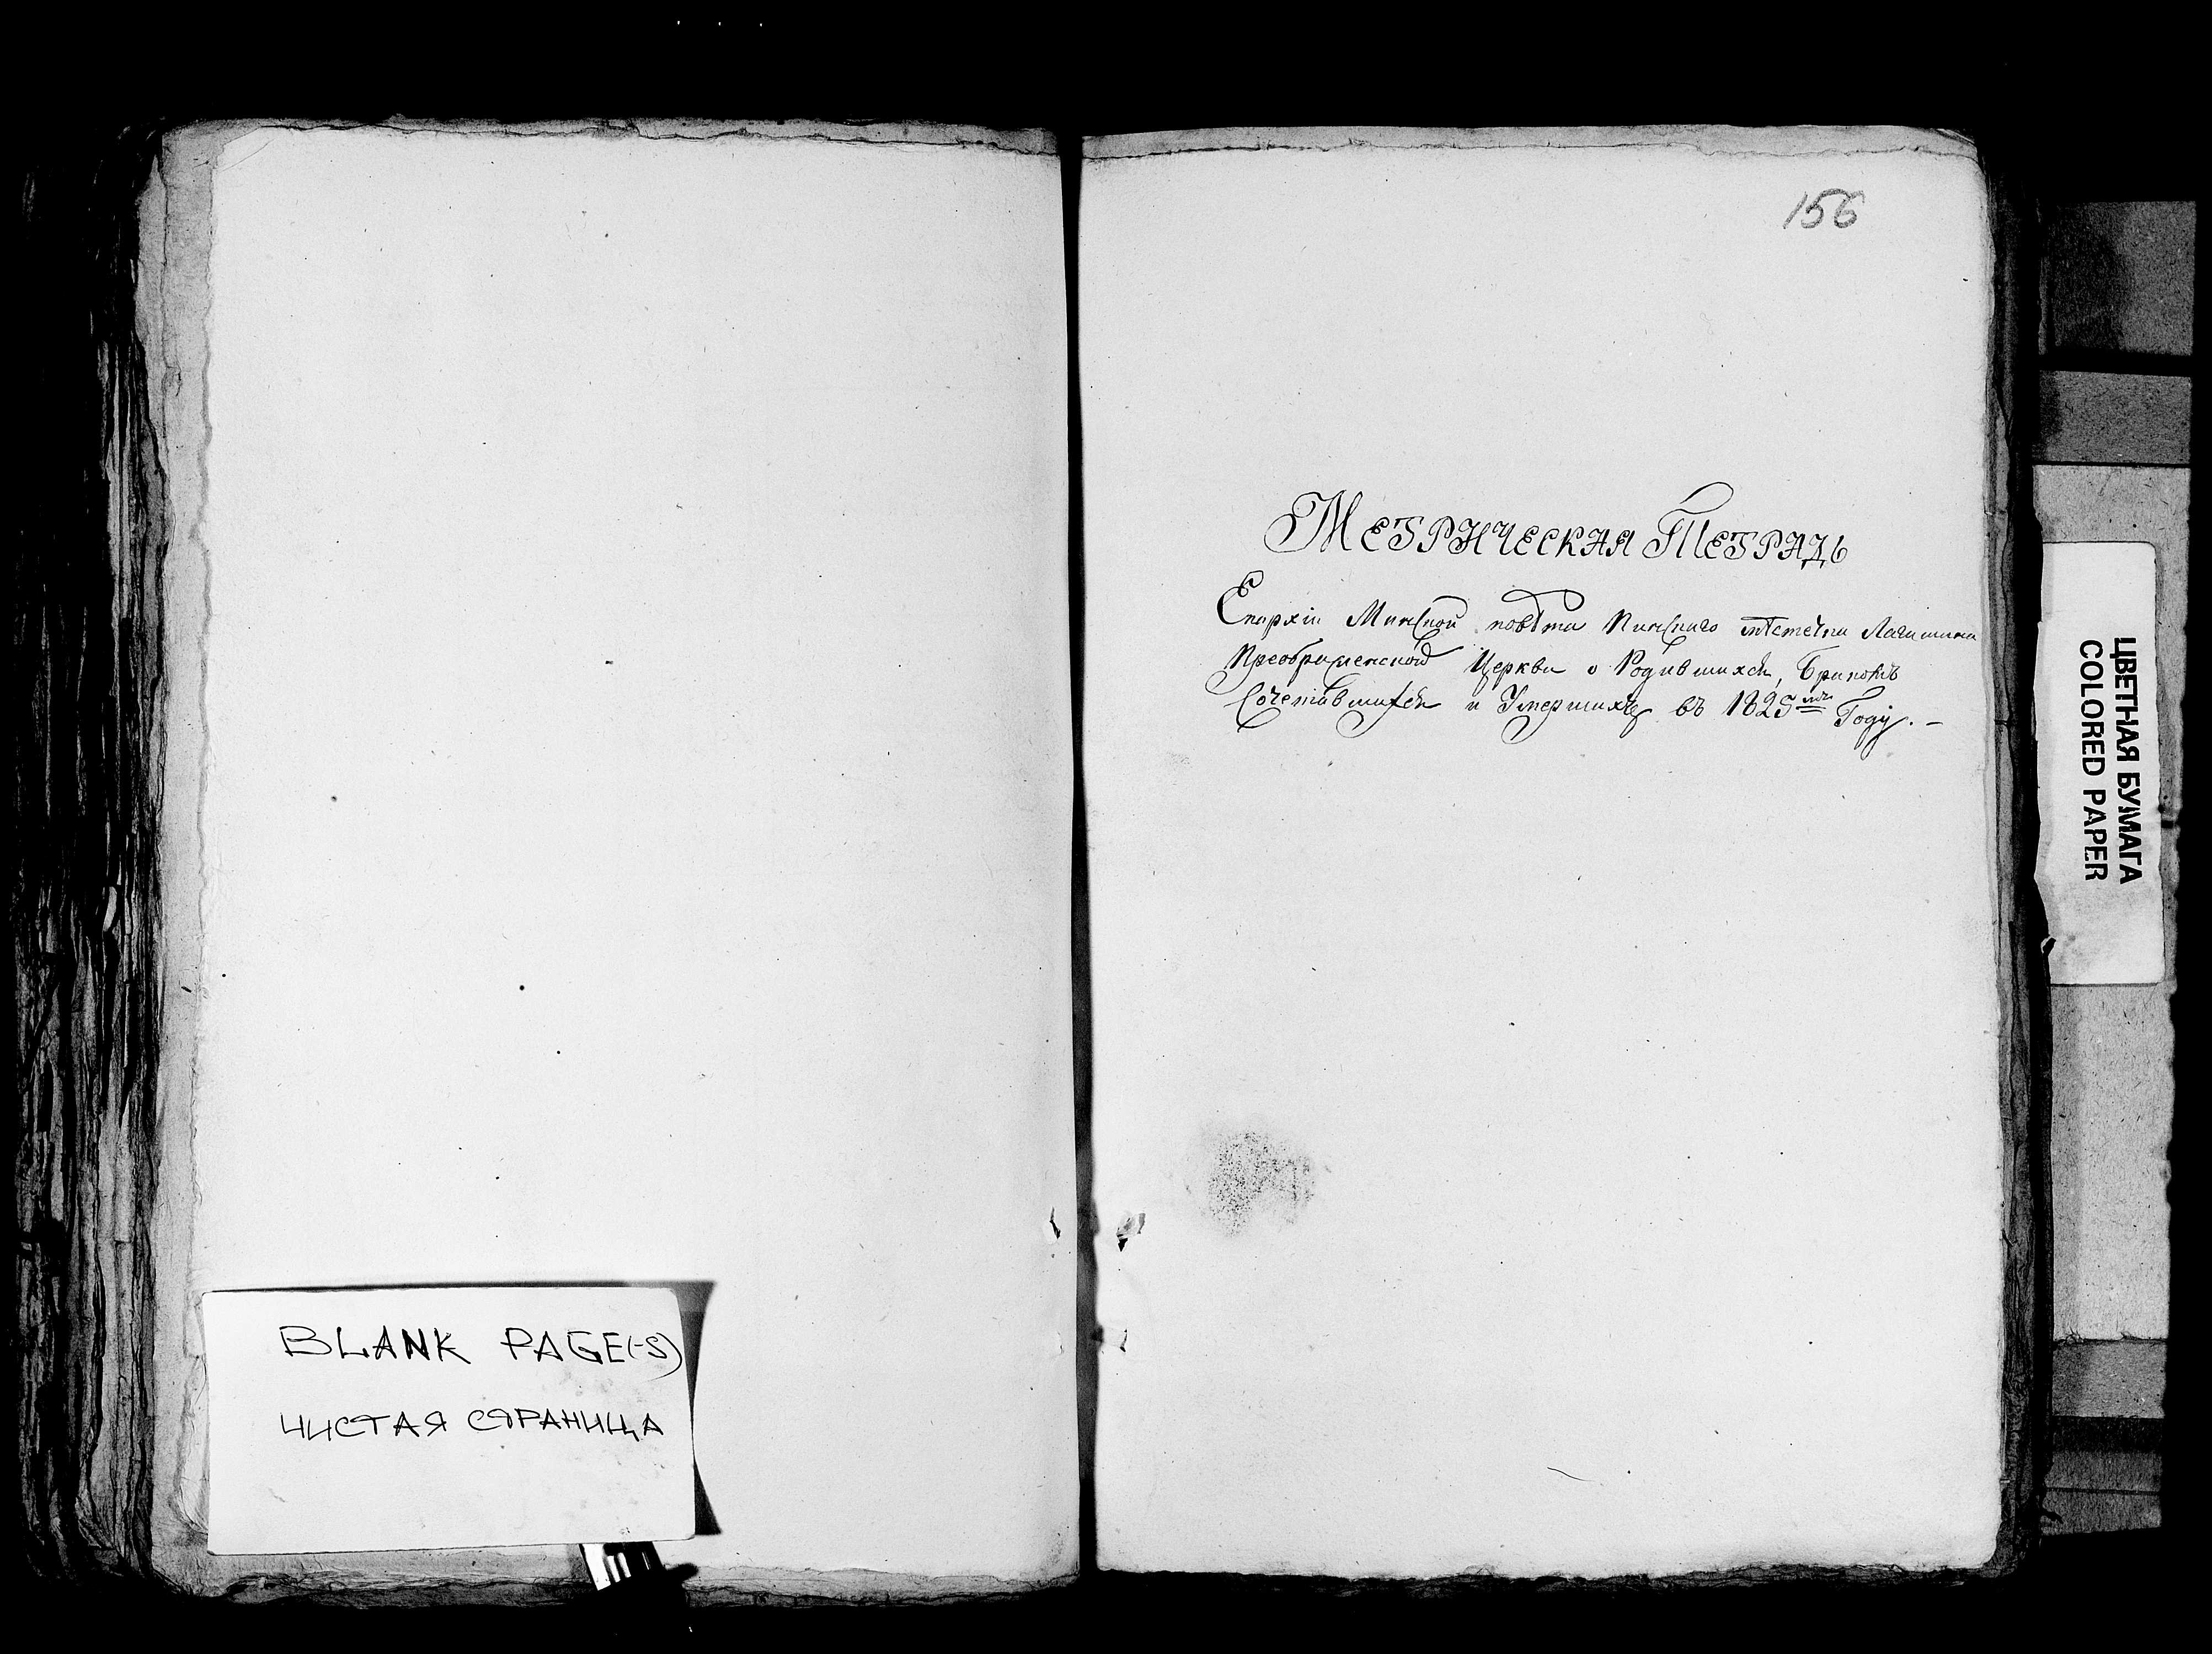 BLANK PAGE(-S)
ЧИСТАЯ СТРАНИЦА
156
Метрическая Тетрадь
Епархіи Минской повѣта Пинскаго мѣстечка Логишина
Преображенской Церкви о Родившихся, Бракомъ
Сочетавшихся и Умершихъ въ 1825мъ Году. –
ЦВЕТНАЯ БУМАГА
COLORED PAPER